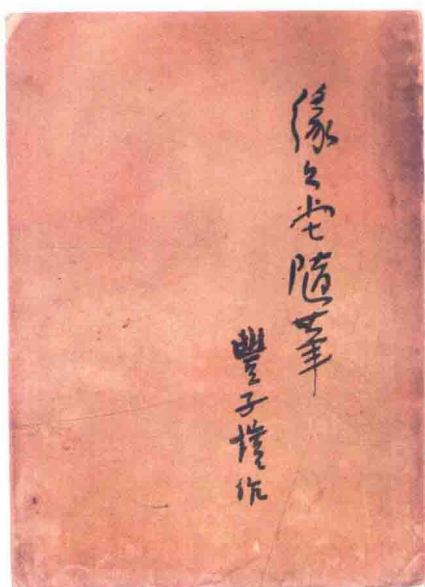 緣〻堂隨筆
豐子愷作